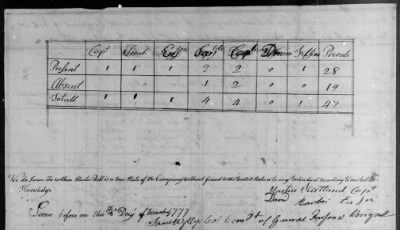 Capt Lieut Ensn Serjts Corpl Drum Fifers Privats
Present 1 1 1 3 2 0 1 28
Absent 1 2 0 0 19
Totall 1 1 1 4 4 0 1 47
We do Swear the within Muster Roll is a true State of the Company without fraud to the United States or to any Individual According to our best
Knowledge
Capt
David
Sworn before me this Day of 1777
of General Brigad